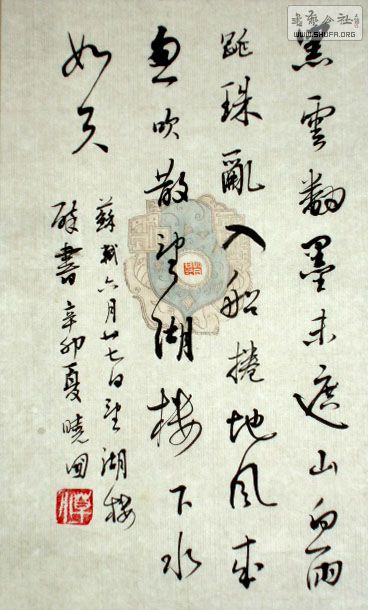 書藝公社
WWW.SHUFA.ORG
黑雲翻墨未遮山白雨
跳珠亂入船捲地風來
忽吹散望湖樓下水
如天
蘇軾六月廿七日望湖樓
醉書 辛卯夏 曉